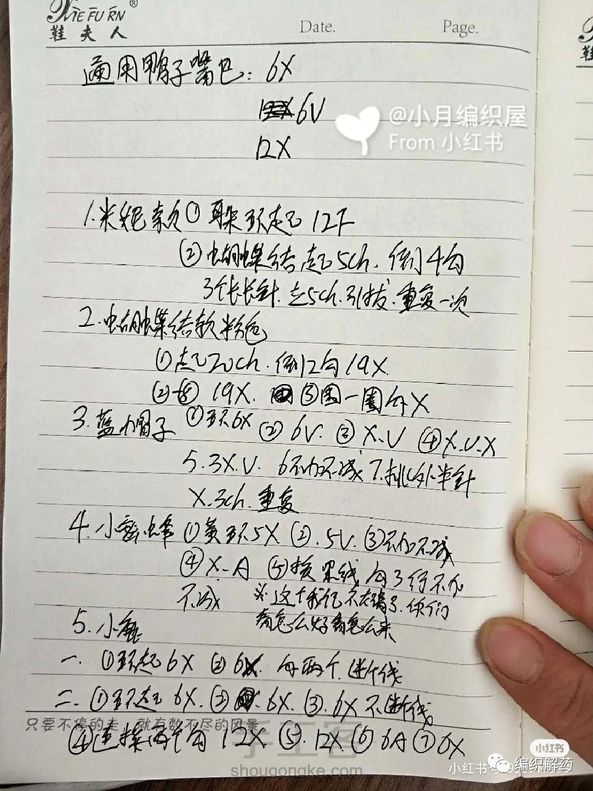 YIEFURN®
鞋夫人
Date. Page.
通用鸭子嘴巴：6X
6V
12X
@小月编织屋
From 小红书
1.米妮款①耳朵环起12F
②蝴蝶结起5ch.倒4勾
3个长长针.立5ch.引拔.重复一次
2.蝴蝶结款粉色
①起20ch.倒12勾19X.
② 19X. ③围一圈勾X
3.蓝小帽子①环6X ②6V.③X.V ④X.V.X
5.3X.V. 6不加不减7.挑外半针
X.3ch.重复
4.小蜜蜂①黄环5X ②.5V.③不加不减
④X.A ⑤换黑线勾3行不加
不减 ※这个我记不太清了.你们
看怎么好看怎么来
5.小
一.①环起6X ②6X.勾两个.断线
二.①环起6X.② 6X.③.6X不断线
只要不停的走，就有数不尽的风景
④连接两个勾12X ⑤12X ⑥6A ⑦6X
手工客
shougongke.com
小红书
编织解药